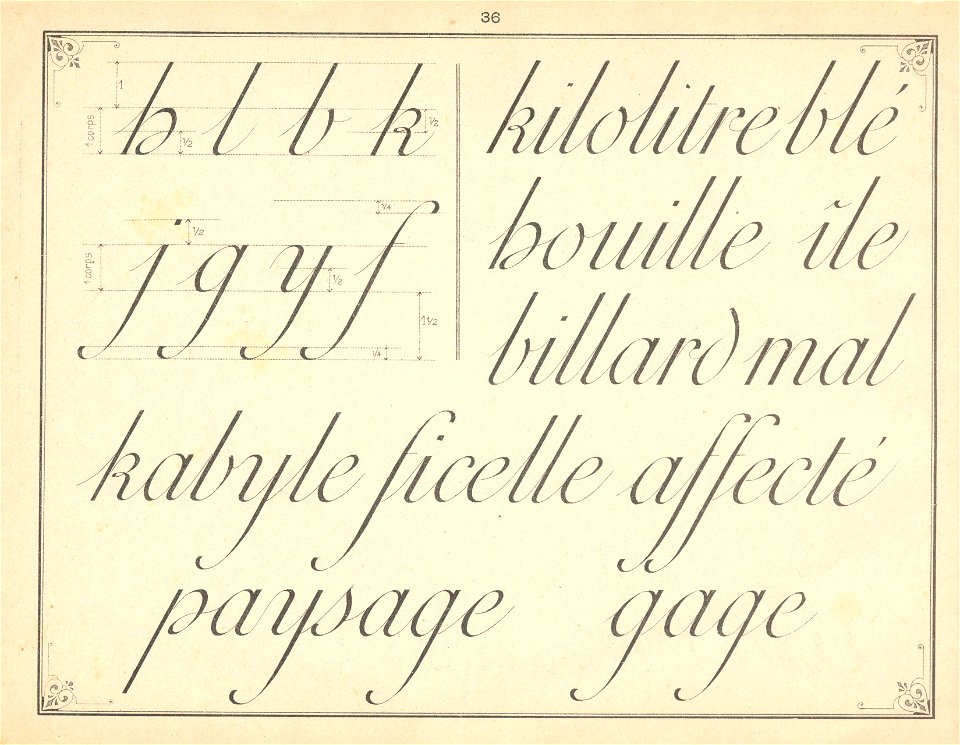 36
h l b k
1
1 corps
1/2
1/2
j g y f
1/4
1/2
1 corps
1/2
1 1/2
1/4
kilolitre blé
houille île
billard mal
kabyle ficelle affecté
paysage gage